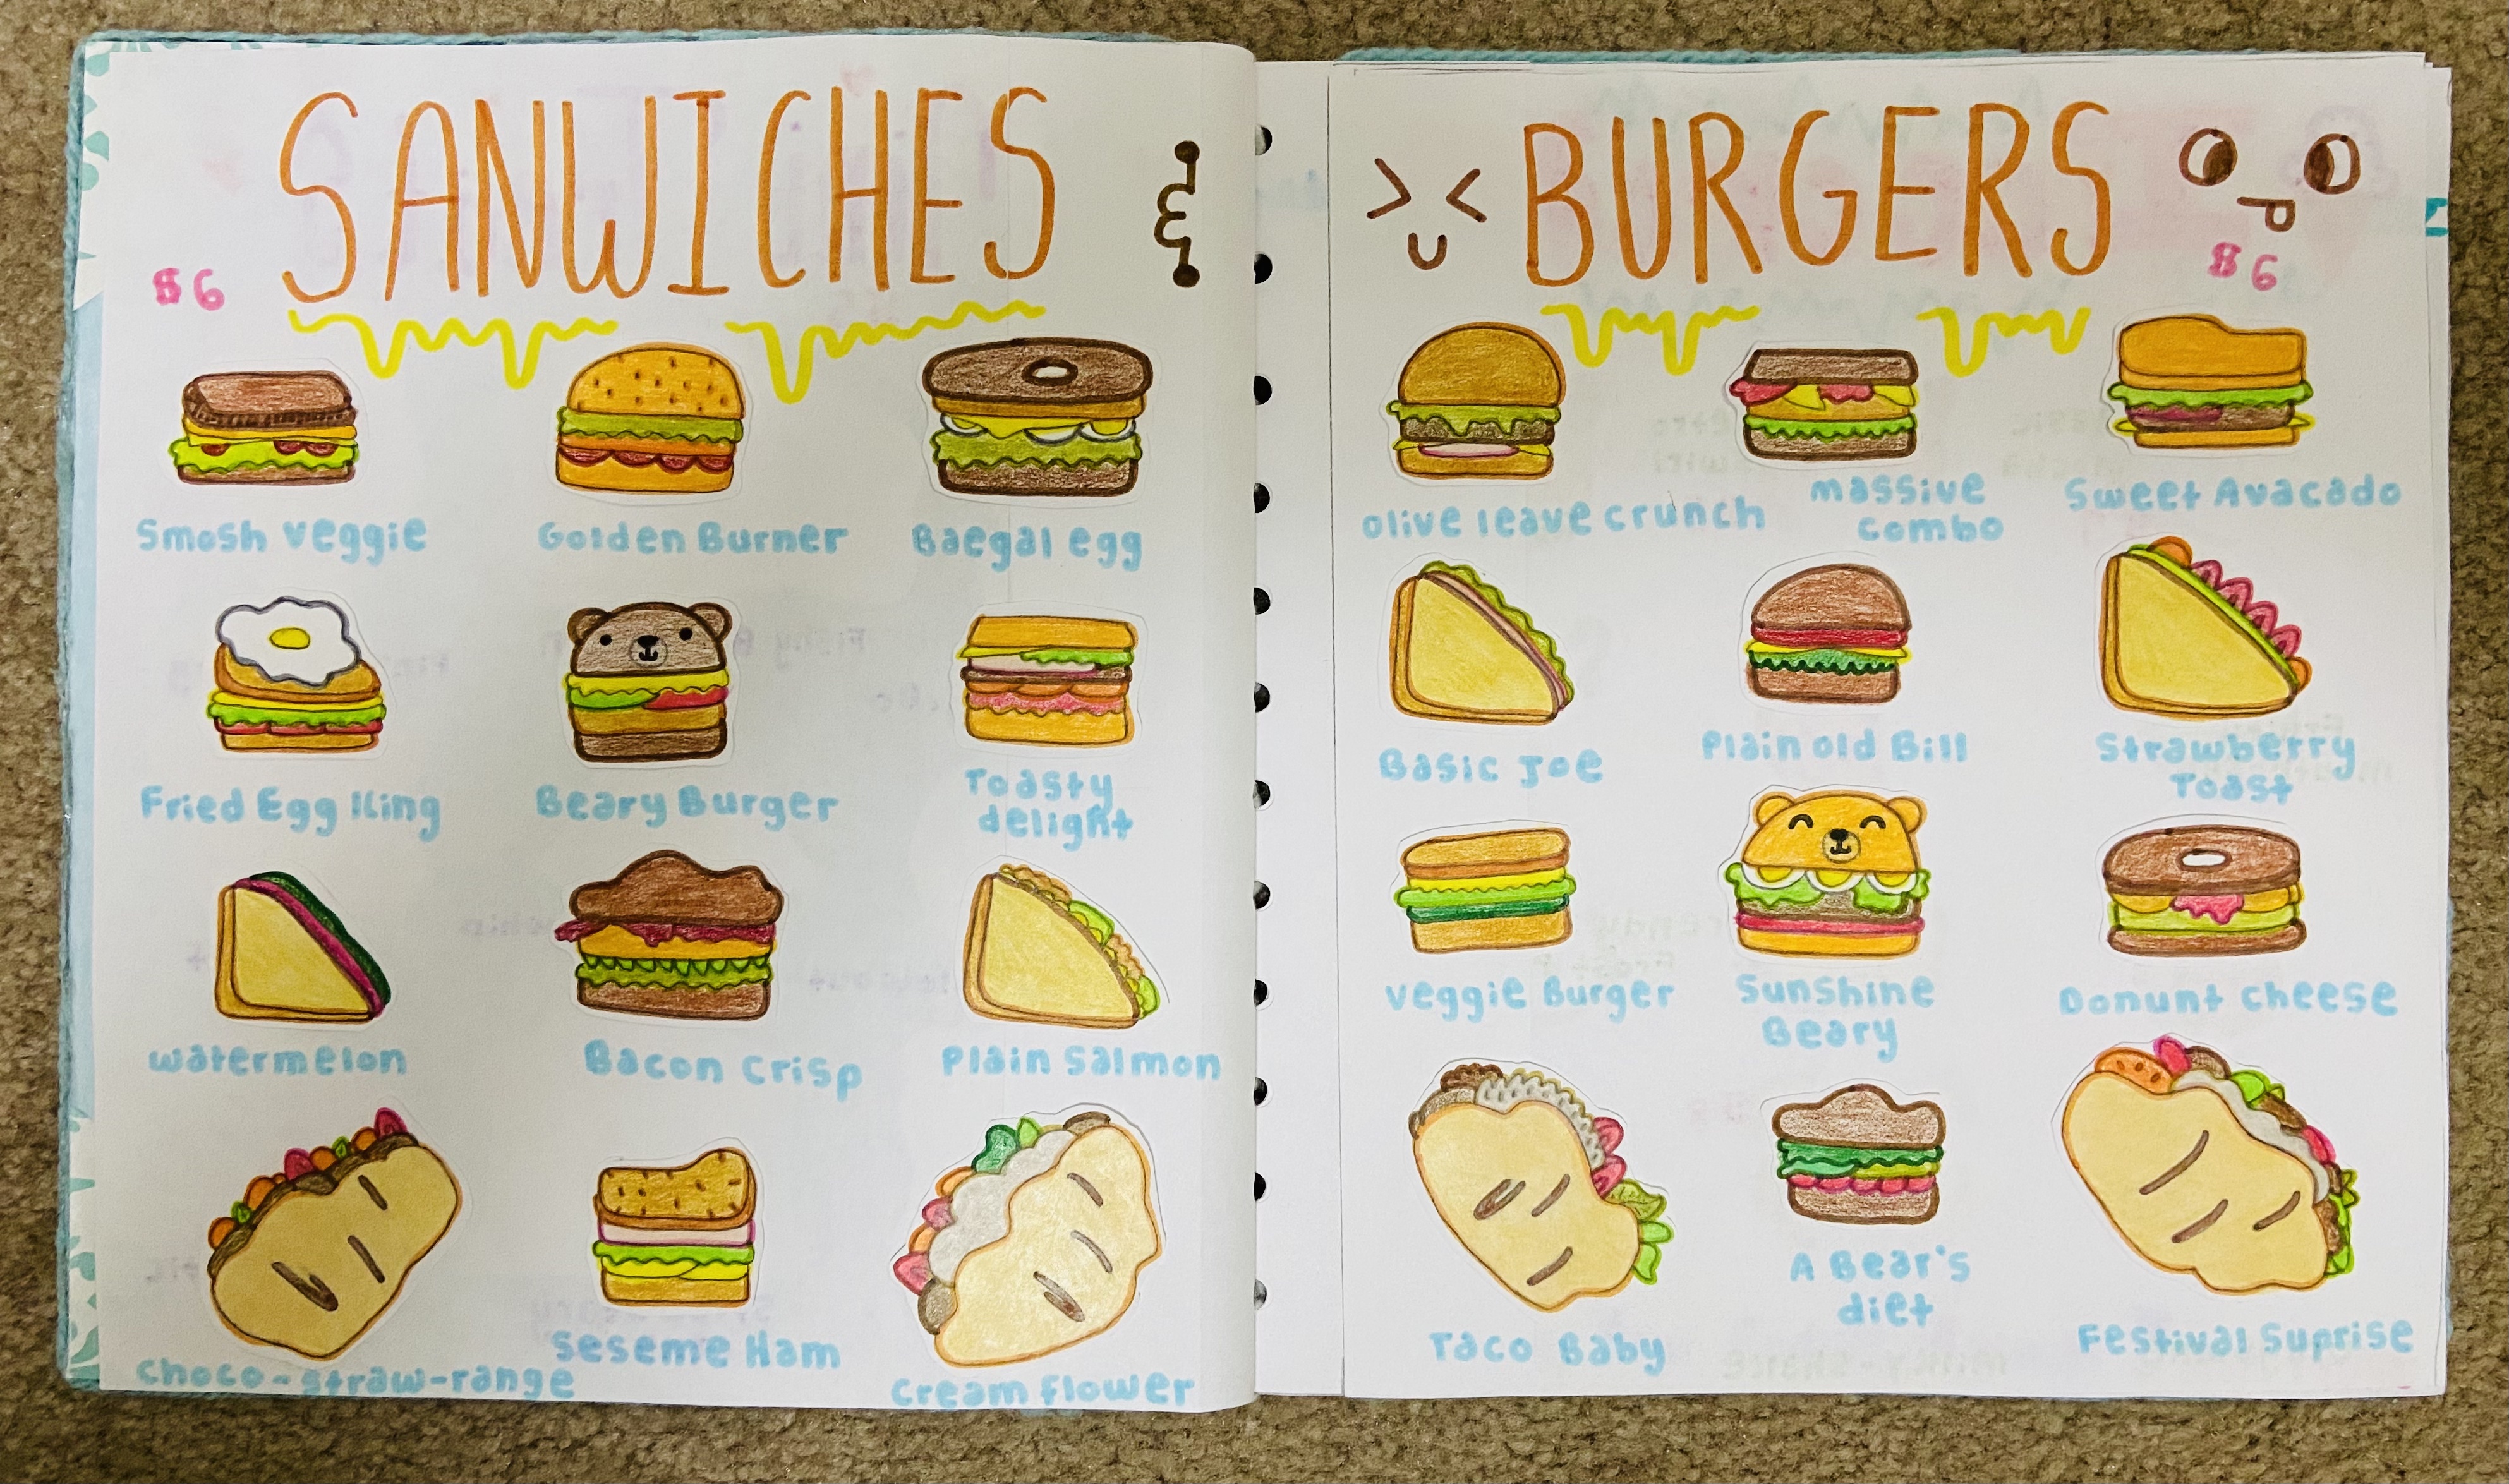 SANWICHES
$6
Smosh veggie
Golden Burner
Baegal egg
Fried Egg King
Beary Burger
Toasty
delight
watermelon
Bacon Crisp
Plain Salmon
choco-straw-range
Seseme Ham
Cream flower
&
BURGERS
$6
olive leave crunch
massive
combo
Sweet Avacado
Basic Joe
Plain old Bill
Strawberry
Toast
veggie Burger
Sunshine
Beary
Donunt cheese
Taco Baby
A Bear's
diet
Festival Suprise